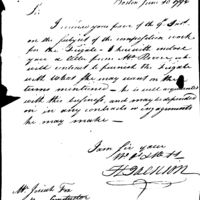 Boston June 30 1794
Sir
I received your favor of the 9 Inst.
on the subject of the composition work
for the Frigate I herewith inclose
you a letter from Mr Revere who
will contract to furnish the Frigate
with what she may want on the
terms mentioned he is well acquainted
with this business, and may be depended
on in any contracts or engagements
he may make
I am Sir your
Mr Josiah Fox